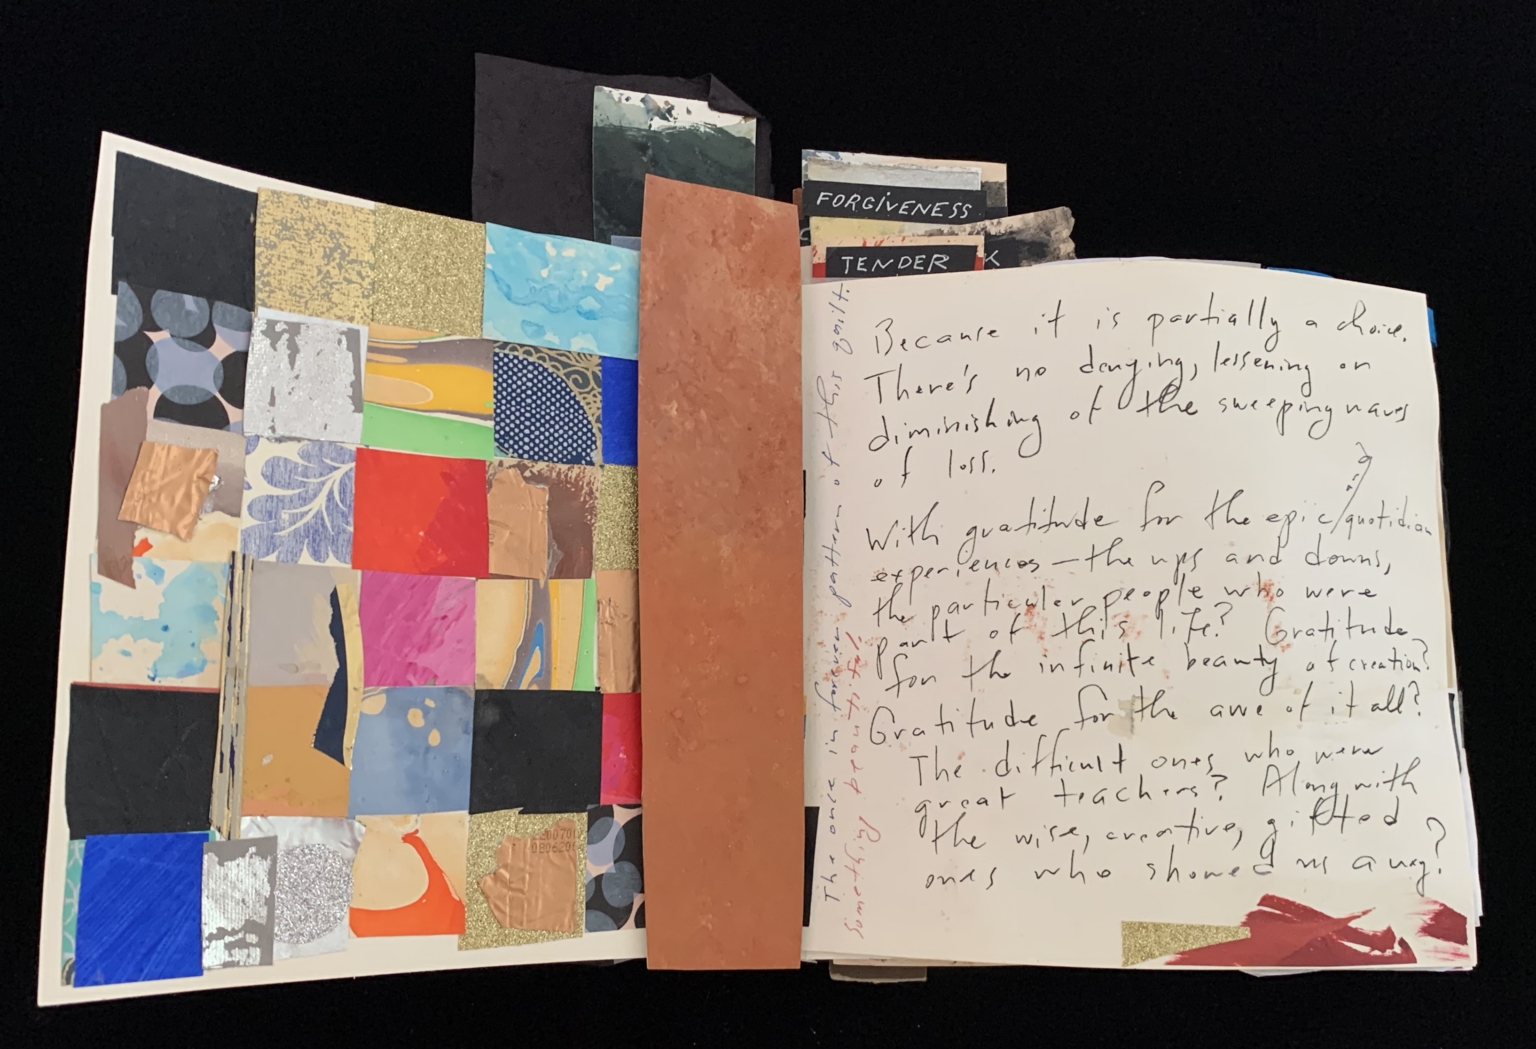 FORGIVENESS
TENDER
K
Because it is partially a choice.
There's no denying, lessening or
diminishing of the sweeping waves
of loss.
With gratitude for the epic/quotidian
experiences — the ups and downs,
the particular people who were
part of this life? Gratitude
for the infinite beauty of creation?
Gratitude for the awe of it all?
The difficult ones who were
great teachers? Along with
the wise, creative, gifted
ones who showed us a way?
The once in forever pattern of this quilt.
something beautiful
200701
080620